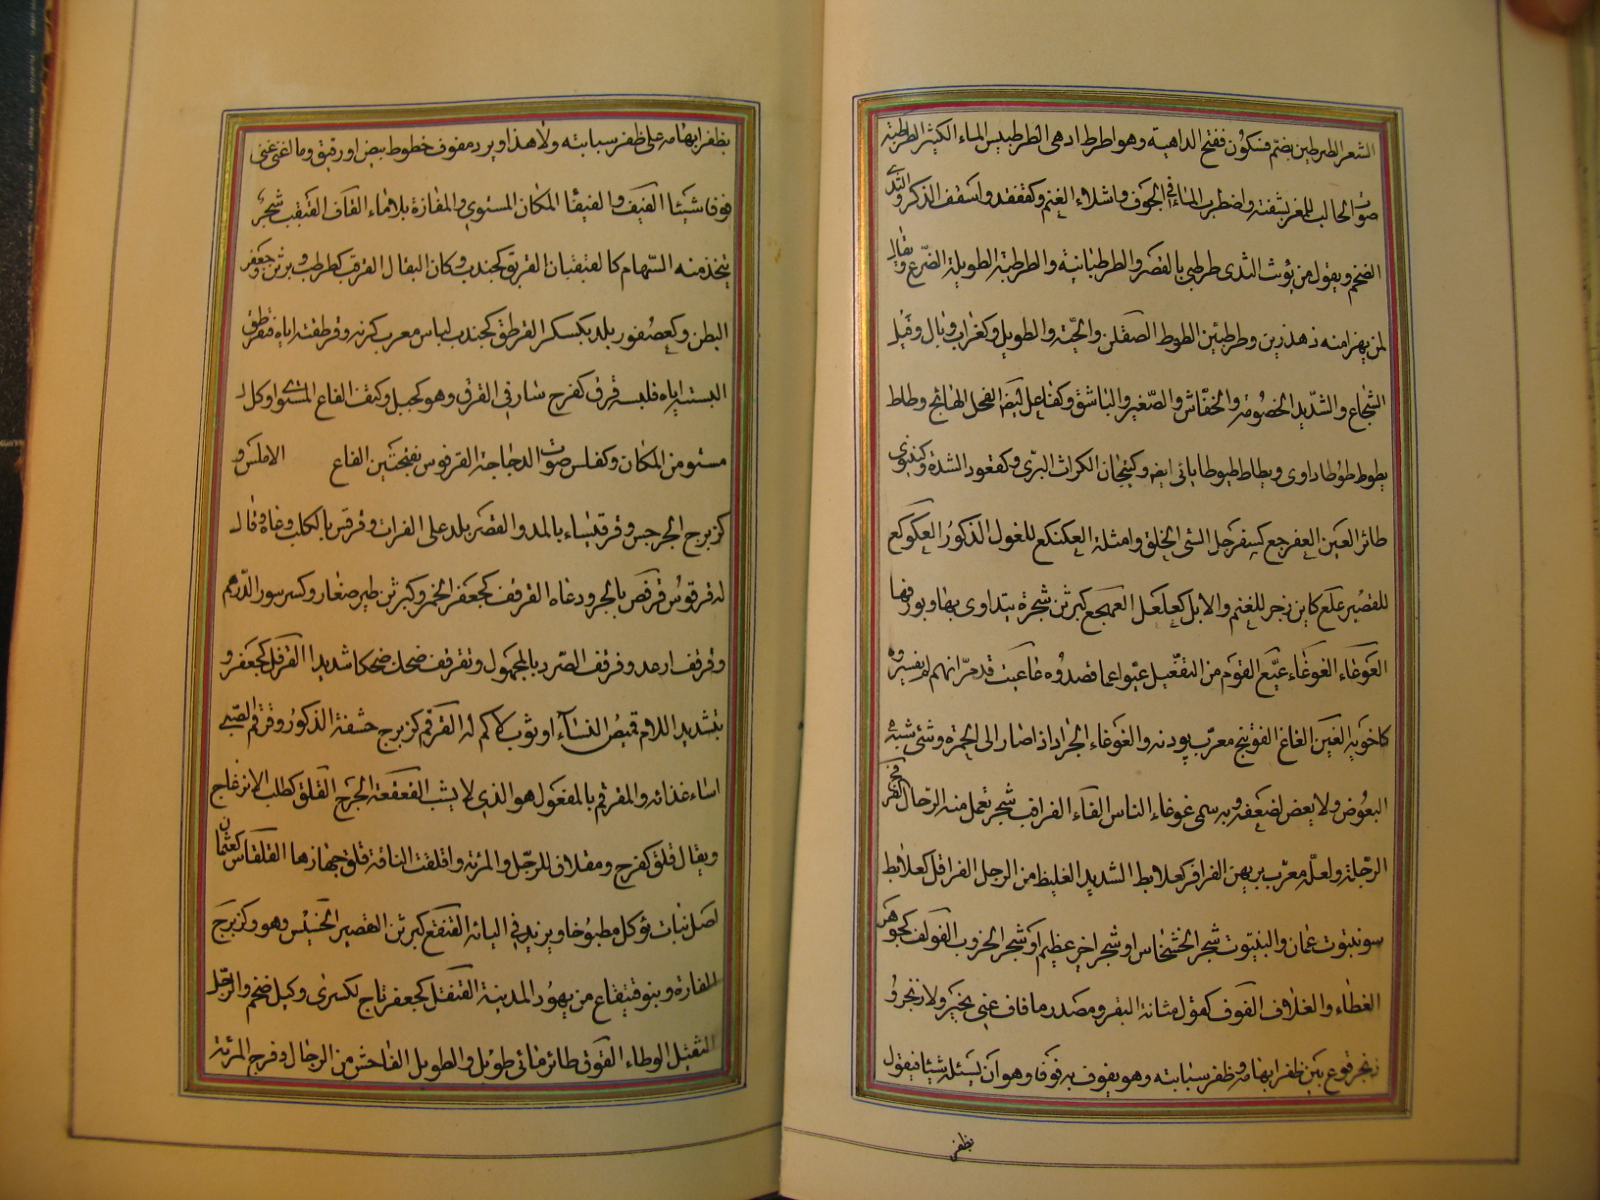 الشعر الطرطبين بضم فسكون ففتح الداهية وهو اطرط ادهى الطرطبيس الماء الكثير الطرطبة
صوت الحالب للمعز بشفته واضطراب الماء في الجوف واشلاء الغنم وكقفقد واسقف الذكر والثدى
الضخم ويقول من يؤنث الثدى طرطبى بالقصر والطرطبانية والطرطبة الطويلة الضرع ويقال
لمن يهزأ منه ذهذرين وطرطبين الطوط القطن والحية والطويل وكغراب وبال وفيل
الشجاع والشديد الخصومة والخفاش والصغير والباشق وكفاعل ايضا الفحل الهائج وطاط
يطوط طوطا داوى ويطاط طيوطا يائى ايضا وكتيجان الكراث البرى وكقعود الشدة وكنينوى
طائر العين العفرجع كسفرجل السئ الخلق وامثلة العكنكع للغول الذكور العكوكع
للقصير علع كاين زجر للغنم والابل كعلعل العمهجع كبرثن شجرة يتداوى بها وبورقها
العوعاء الغوغاء عيع القوم من التفعيل عيوا عما قصدوه عاعيت قد مر انهم لم يفسروه
كاخويه الغين الغاغ الفوتنج معرب پودنه والغوغاء الجراد اذا صار الى الحمرة وشئ يشبه
البعوض ولا يعض لضعفه وبه سمى غوغاء الناس الفاء الفرافب شجر تعمل منه الرحال الفرفخ
الرجلة ولعله معرب برپهن الفرافر كعلابط الشديد الغليظ من الرجل الفرافل كعلابط
سو ينبوت عمان والينبوت شجر الخشخاش او شجر اخر عظيم او شجر الخروب الفولف كجوهر
الغطاء والغلاف الفوف كقول مثانة البقر ومصدر ما فاف عنى بخير ولا زنجر و
زنجر قوع بين ظفر ابهامه وظفر سبابته وهو يفوف به فوفا وهو ان يسئله شيئا فيقول
بظفر
بظفر ابهامه على ظفر سبابته ولا هذا وبرد مفوف خطوط بيض او رقيق وما اغنى عنى
فوفا شيئا الفيف والفيفا المكان المستوى والمفازة بلا ماء القاف القيقب شجر
يتخذ منه السهام كالقيقبان القربق كجندب دكان البقال القرقب كطرطب وبرثن وجعفر
البطن وكعصفور بلد بكسكر القرطق كجندب لباس معرب كرته وقرطقته اياه فتقرطق
البسته اياه فلبسه قرق كفرح سار فى القرق وهو كجبل وكتف القاع المستوى او كل
مستو من المكان وكفلس صوت الدجاجة القرقوس بفتحتين القاع الاملس و
كزبرج الجرجس وقرقيساء بالمد والقصر بلد على الفرات وقرقس بالكلب دعاه وقال
له قرقوس قرقص بالجرو دعاه القرقف كجعفر الخمر وكبرثن طير صغار وكسرسور الدرهم
وقرقف ارعد وقرقف الصرد بالمجهول وتقرقف ضحك ضحكا شديدا القرقل كجعفر و
بتشديد اللام قميص النساء او ثوب لا كم له القرقم كزبرج حشفة الذكور وقرقم الصبى
اساء غذائه والمقرقم بالمفعول هو الذى لا يشب القعقعة الجرح القلق كطلب الانزعاج
ويقال قلق كفرح ومقلاق للرجل والمرئة واقلقت الناقة قلق جهازها القلقاس كعثمان
اصل نبات يؤكل مطبوخا ويزيد فى الباءة القنقع كبرثن القصير الخسيس وهو وكزبرج
الفارة وبنو قينقاع من يهود المدينة القنقل كجعفر تاج لكسرى وكيل ضخم والرجل
الثقيل الوطاء القوق طائر مائى طويل والطويل الفاحش من الرجال وفرج المرئة